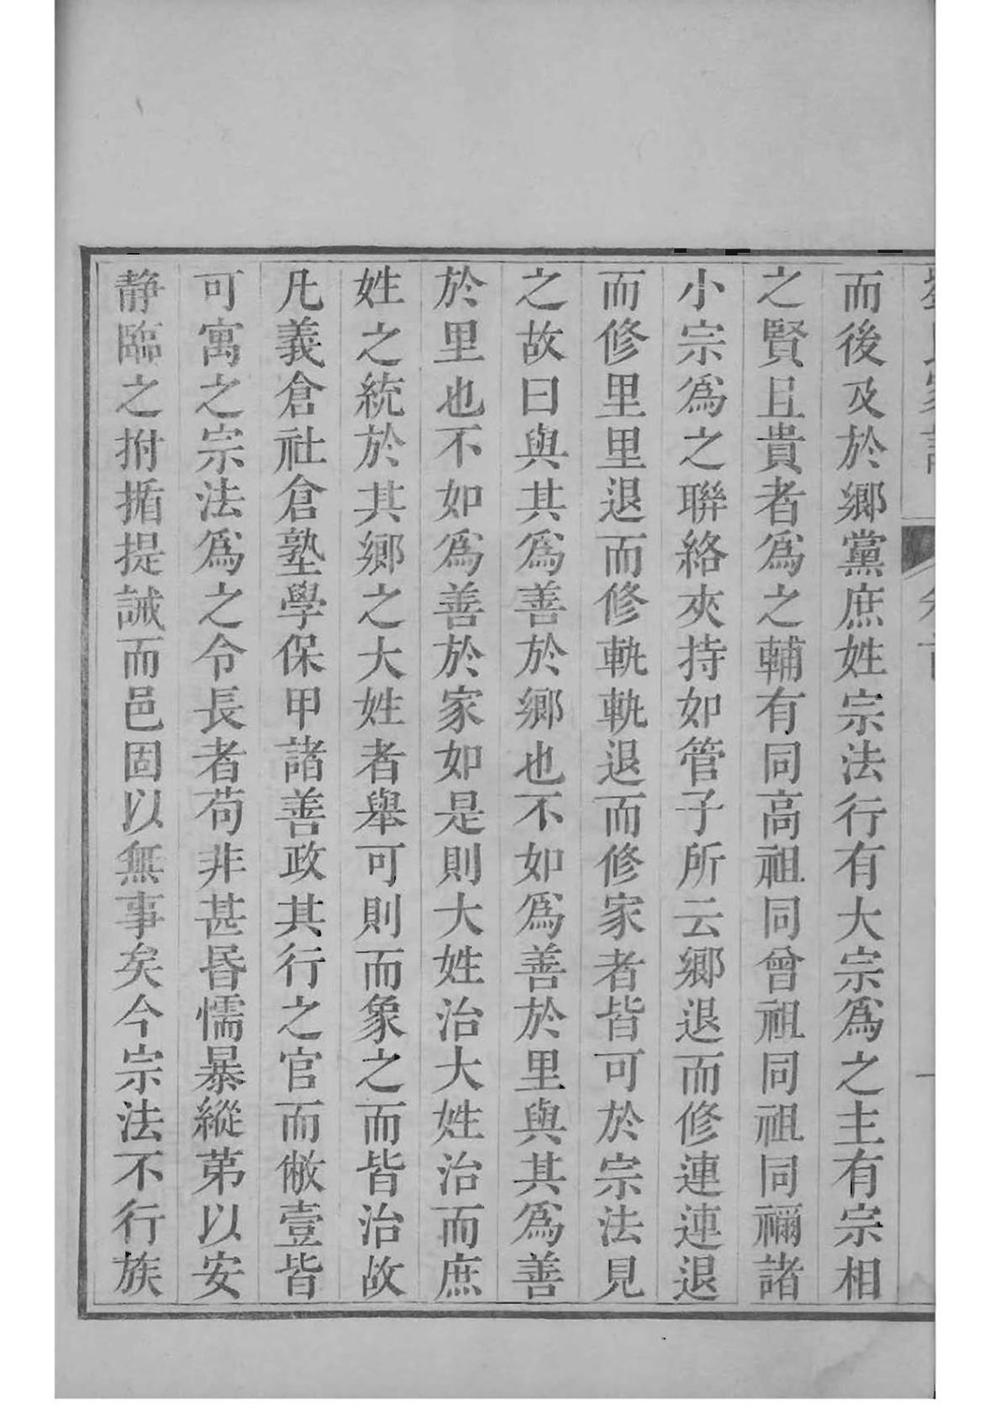 而後及於鄉黨庶姓宗法行有大宗爲之主有宗相
之賢且貴者爲之輔有同高祖同曾祖同祖同禰諸
小宗爲之聯絡夾持如管子所云鄉退而修連連退
而修里里退而修軌軌退而修家者皆可於宗法見
之故曰與其爲善於鄉也不如爲善於里與其爲善
於里也不如爲善於家如是則大姓治大姓治而庶
姓之統於其鄉之大姓者舉可則而象之而皆治故
凡義倉社倉塾學保甲諸善政其行之官而敝壹皆
可寓之宗法爲之令長者苟非甚昬懦暴縱苐以安
静臨之拊揗提誡而邑固以無事矣今宗法不行族